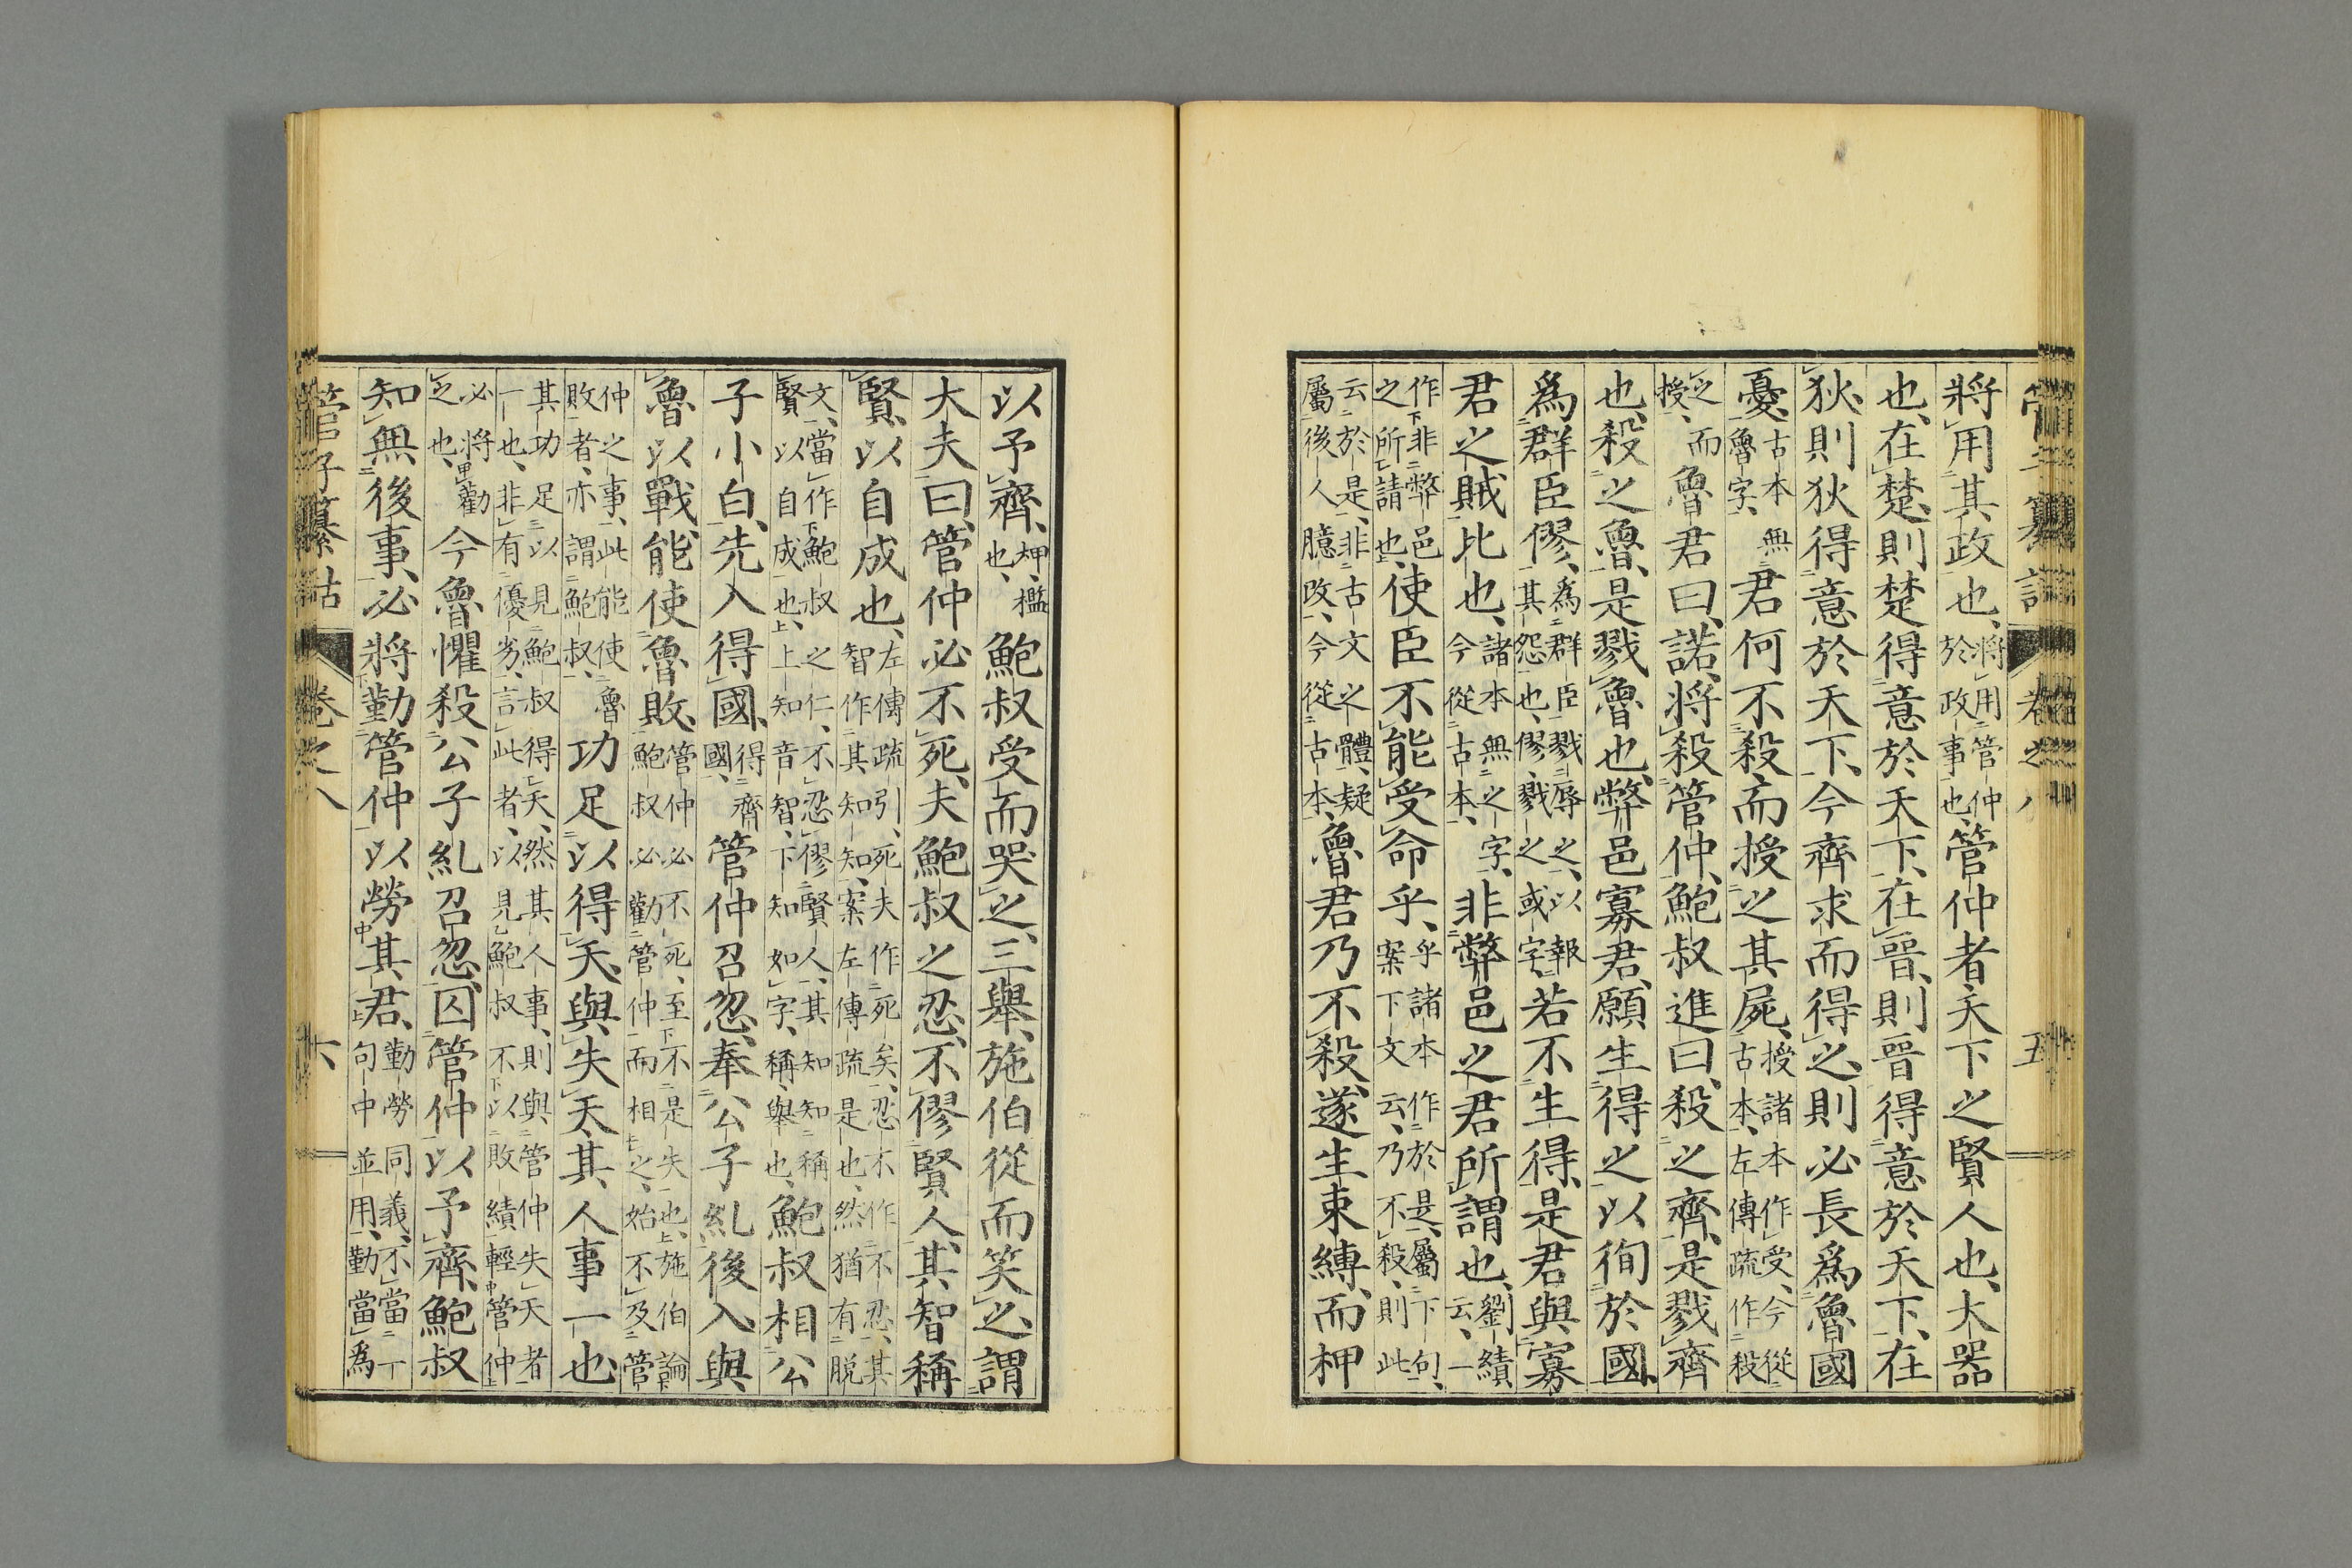 管子纂詁 卷之八 五
將用其政也、將用管仲於政事也、管仲者、天下之賢人也、大器
也、在楚、則楚得意於天下、在晉、則晉得意於天下、在
狄、則狄得意於天下、今齊求而得之、則必長爲魯國
憂、古本無魯字、君何不殺而授之其屍、授諸本作受、今從古本、左傳疏作殺
之而授、魯君曰、諾、將殺管仲、鮑叔進曰、殺之齊、是戮齊
也、殺之魯、是戮魯也、弊邑寡君、願生得之、以徇於國、
爲群臣僇、爲群臣戮辱之、以報其怨也、僇、戮之或字、若不生得、是君與寡
君之賊比也、諸本無之字、今從古本、非弊邑之君所謂也、劉績云、一
作非弊邑之所請也、使臣不能受命乎、乎諸本作於是、屬下句、案下文云、乃不殺、則此
云於是、非古文之體、疑屬後人臆改、今從古本、魯君乃不殺、遂生束縛、而柙
以予齊、柙、檻也、鮑叔受而哭之、三舉、施伯從而笑之、謂
大夫曰、管仲必不死、夫鮑叔之忍、不僇賢人、其智稱
賢、以自成也、左傳疏引、死夫作死矣、忍不作不忍、其智作其知知、案左傳疏是也、然猶有脫
文、當作鮑叔之仁、不忍僇賢人、其知知稱賢以自成也、上知音智、下知如字、稱、舉也、鮑叔相公
子小白、先入得國、得齊國、管仲召忽、奉公子糺後入、與
魯以戰、能使魯敗、管仲必不死、至不是失也、施伯論鮑叔必勸管仲而相之、始不及管
仲之事、此能使魯敗者、亦謂鮑叔、功足以得天、與失天、其人事一也、
其功足以見鮑叔得天、然其人事、則與管仲失天者一也、非有優劣、言此者、以見鮑叔不以敗績輕管仲
必將勸之也、今魯懼、殺公子糺召忽、囚管仲以予齊、鮑叔
知無後事、必將勤管仲以勞其君、勤勞同義、不當一句中並用、勤當爲
管子纂詁 卷之八 六